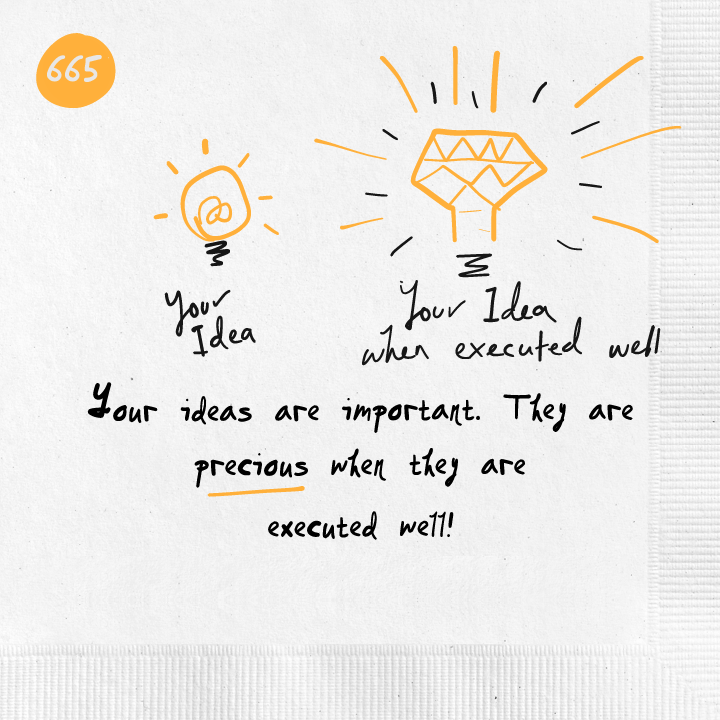 665
Your
Idea
Your Idea
when executed well
Your ideas are important. They are
precious when they are
executed well!